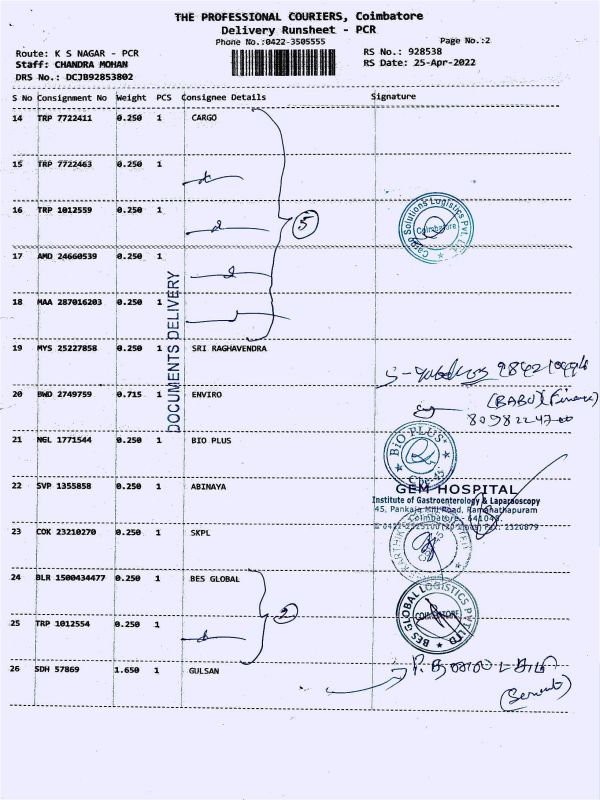 THE PROFESSIONAL COURIERS, Coimbatore
Delivery Runsheet - PCR
Phone No.:0422-3505555
Page No.:2
Route: K S NAGAR - PCR
RS No.: 928538
Staff: CHANDRA MOHAN
RS Date: 25-Apr-2022
DRS No.: DCJB92853802
S No Consignment No Weight PCS Consignee Details Signature
14 TRP 7722411 0.250 1 CARGO
15 TRP 7722463 0.250 1
16 TRP 1012559 0.250 1
5
Cargo Solutions Logistics Pvt. Ltd.
Coimbatore
17 AMD 24660539 0.250 1
18 MAA 287016203 0.250 1
DOCUMENTS DELIVERY
19 MYS 25227858 0.250 1 SRI RAGHAVENDRA
20 BWD 2749759 0.715 1 ENVIRO
(BABU) (Finance)
21 NGL 1771544 0.250 1 BIO PLUS
BIO PLUS
Cbe-45
22 SVP 1355858 0.250 1 ABINAYA
GEM HOSPITAL
Institute of Gastroenterology & Laparoscopy
45, Pankaja Mill Road, Ramanathapuram
Coimbatore - 641045.
23 COK 23210270 0.250 1 SKPL
24 BLR 1500434477 0.250 1 BES GLOBAL
BES GLOBAL LOGISTICS PVT LTD
COIMBATORE
25 TRP 1012554 0.250 1
2
26 SDH 57869 1.650 1 GULSAN
(Servent)